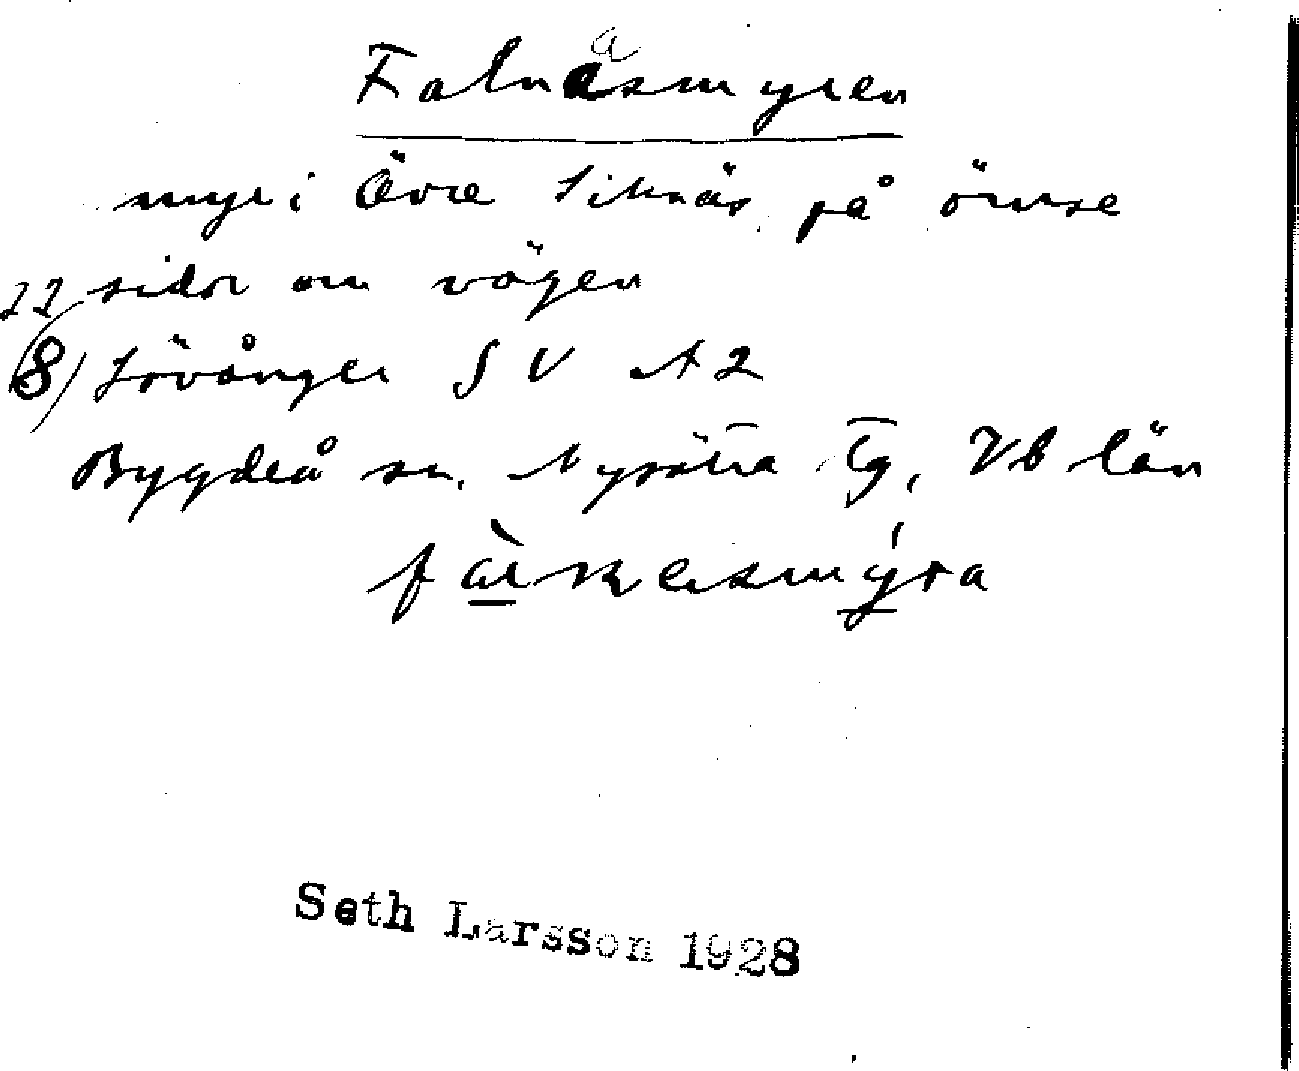 Falnåsmyren
myr i Övre Siknäs på ömse
22 sidor om vägen
(8) Lövånger SV A2
Bygdeå sn. Nysätra tg, Vb län
Seth Larsson 1928